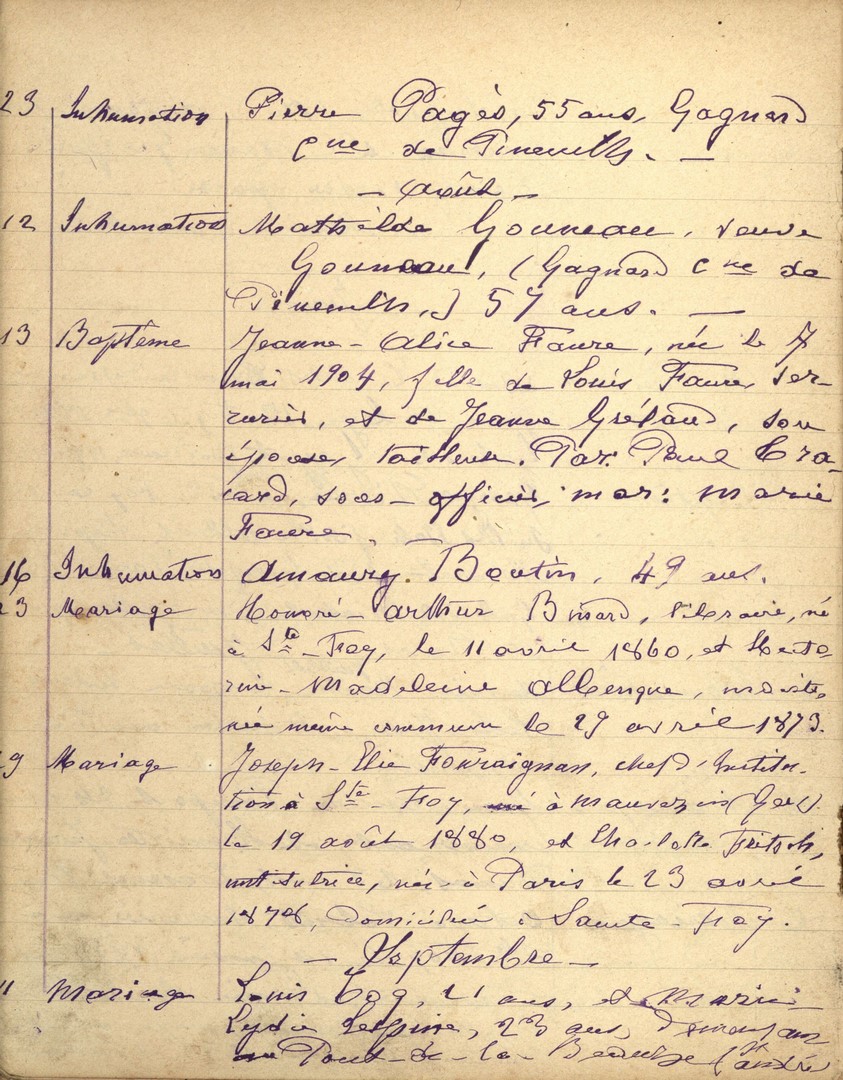 23 Inhumation Pierre Pagès, 55 ans, Gagnard
Cne de Pineuilh. —
— Août —
12 Inhumation Mathilde Gouneau, veuve
Gouneau, (Gagnard Cne de
Pineuilh,) 57 ans. —
13 Baptême Jeanne-Alice Faure, née le 7
mai 1904, fille de Louis Faure, ser-
rurier, et de Jeanne Grélaud, son
épouse, tailleuse. Par: Paul
sous-officier, mar: Marie
Faure. —
16 Inhumation Amaury Boutin, 49 ans.
23 Mariage Honoré-Arthur Binard, libraire, né
à Ste-Foy, le 11 avril 1860, et
Madeleine Albenque,
née même commune le 29 avril 1873.
9 Mariage Joseph-Elie Fouraignan, chef d'institu-
tion à Ste-Foy, né à Mauvezin (Gers)
le 19 août 1880, et Charlotte Fritsch,
institutrice, née à Paris le 23 avril
1878, domiciliée à Sainte-Foy.
— Septembre —
11 Mariage Louis 21 ans, et Marie
Lydie Lespine, 23 ans, demeurant
au Pont-de-la-Beauze (St André